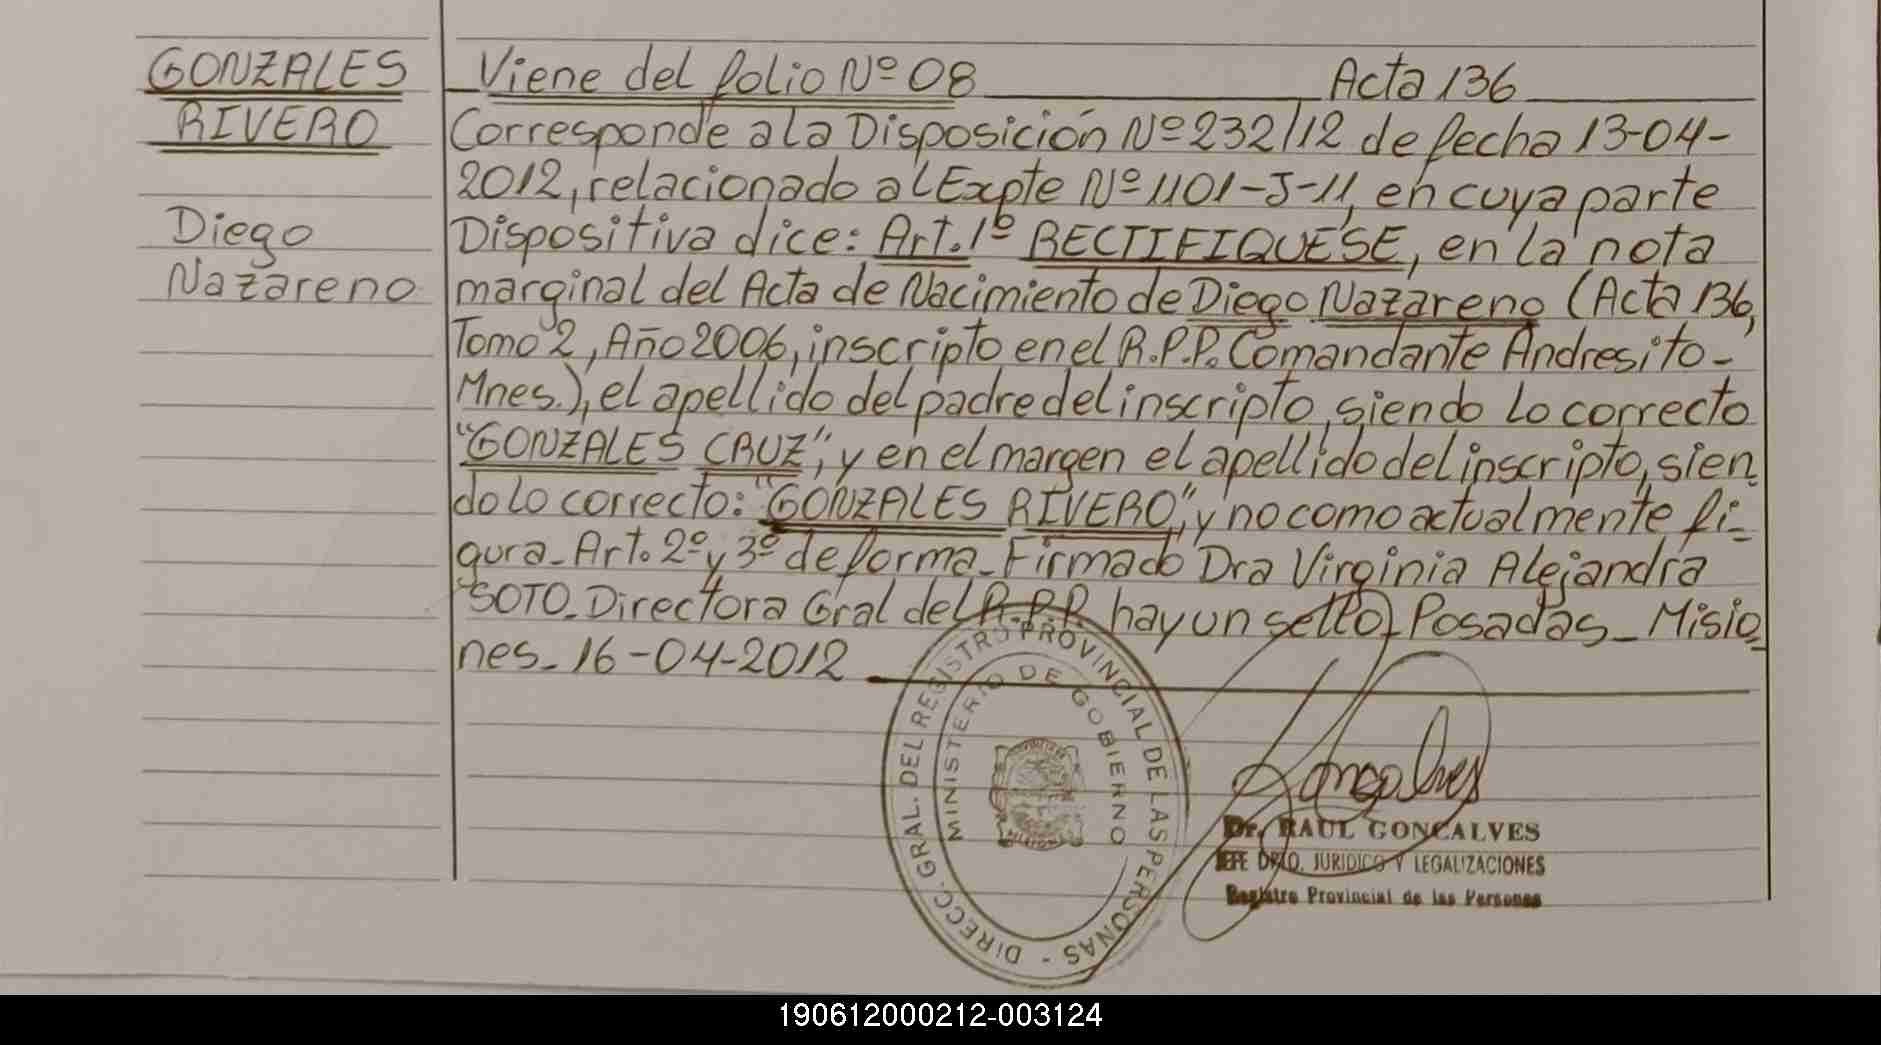 GONZALES
RIVERO
Diego
Nazareno
Viene del folio Nº 08 Acta 136
Corresponde a la Disposición Nº 232/12 de fecha 13-04-
2012, relacionado al Expte Nº 1101-J-11, en cuya parte
Dispositiva dice: Art. 1º RECTIFIQUESE, en la nota
marginal del Acta de Nacimiento de Diego Nazareno (Acta 136,
Tomo 2, Año 2006, inscripto en el R.P.P. Comandante Andresito-
Mnes.), el apellido del padre del inscripto, siendo lo correcto
"GONZALES CRUZ", y en el margen el apellido del inscripto, sien
do lo correcto: "GONZALES RIVERO", y no como actualmente fi-
gura- Art. 2º y 3º de forma- Firmado Dra Virginia Alejandra
SOTO- Directora Gral del R.P.P. hay un sello) Posadas- Misio
nes- 16-04-2012
DIRECC. GRAL. DEL REGISTRO PROVINCIAL DE LAS PERSONAS -
MINISTERIO DE GOBIERNO
Goncalves
Dr. RAUL GONCALVES
JEFE DPTO. JURIDICO Y LEGALIZACIONES
Registro Provincial de las Personas
190612000212-003124